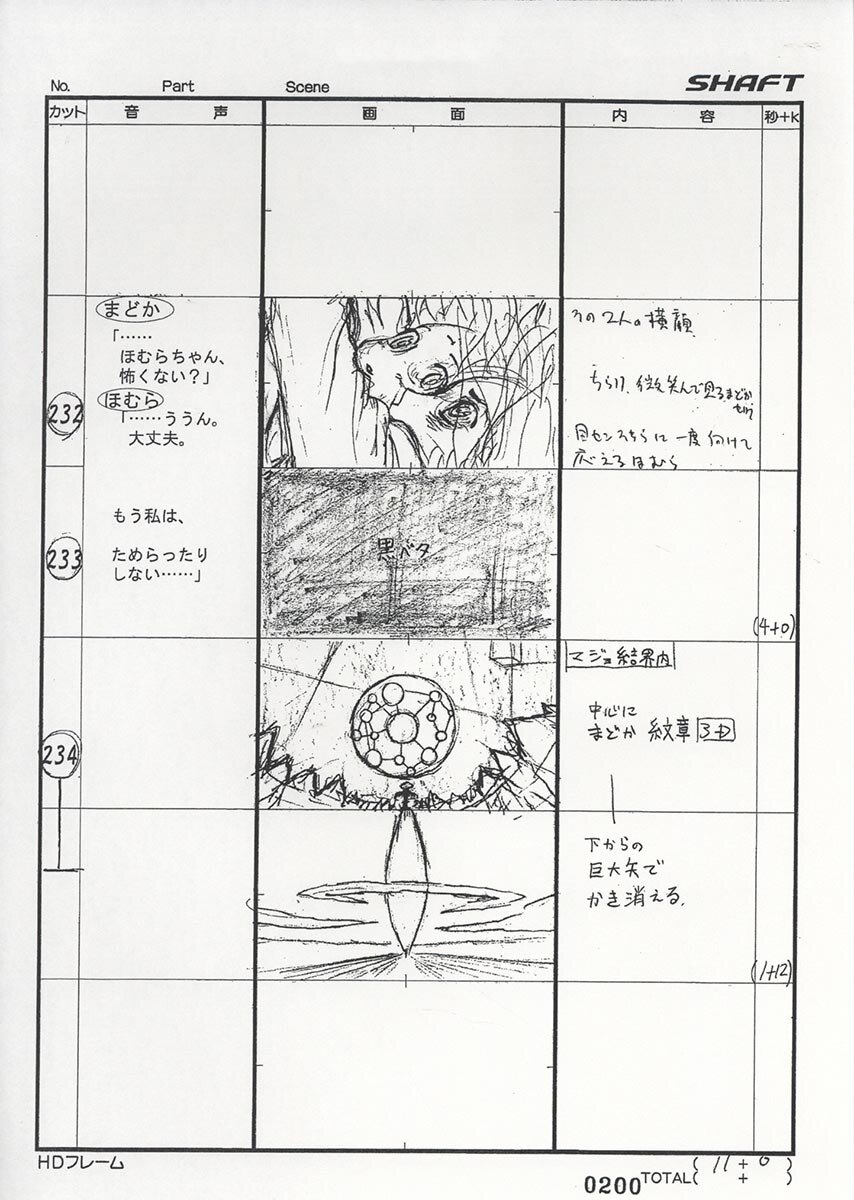 No. Part Scene SHAFT
カット 音声 画面 内容 秒+k
232
まどか
「……
ほむらちゃん、
怖くない？」
ほむら
「……ううん。
大丈夫。
その2人の横顔
ちらり、微笑んで見るまどか
一度向けて
応えるほむら
233
もう私は、
ためらったり
しない……」
黒ベタ
(4+0)
234
マジョ結界内
中心に
まどか 紋章 3D
下からの
巨大矢で
かき消える.
(1+12)
HDフレーム
0200 TOTAL( 11 + 0 )
( + )